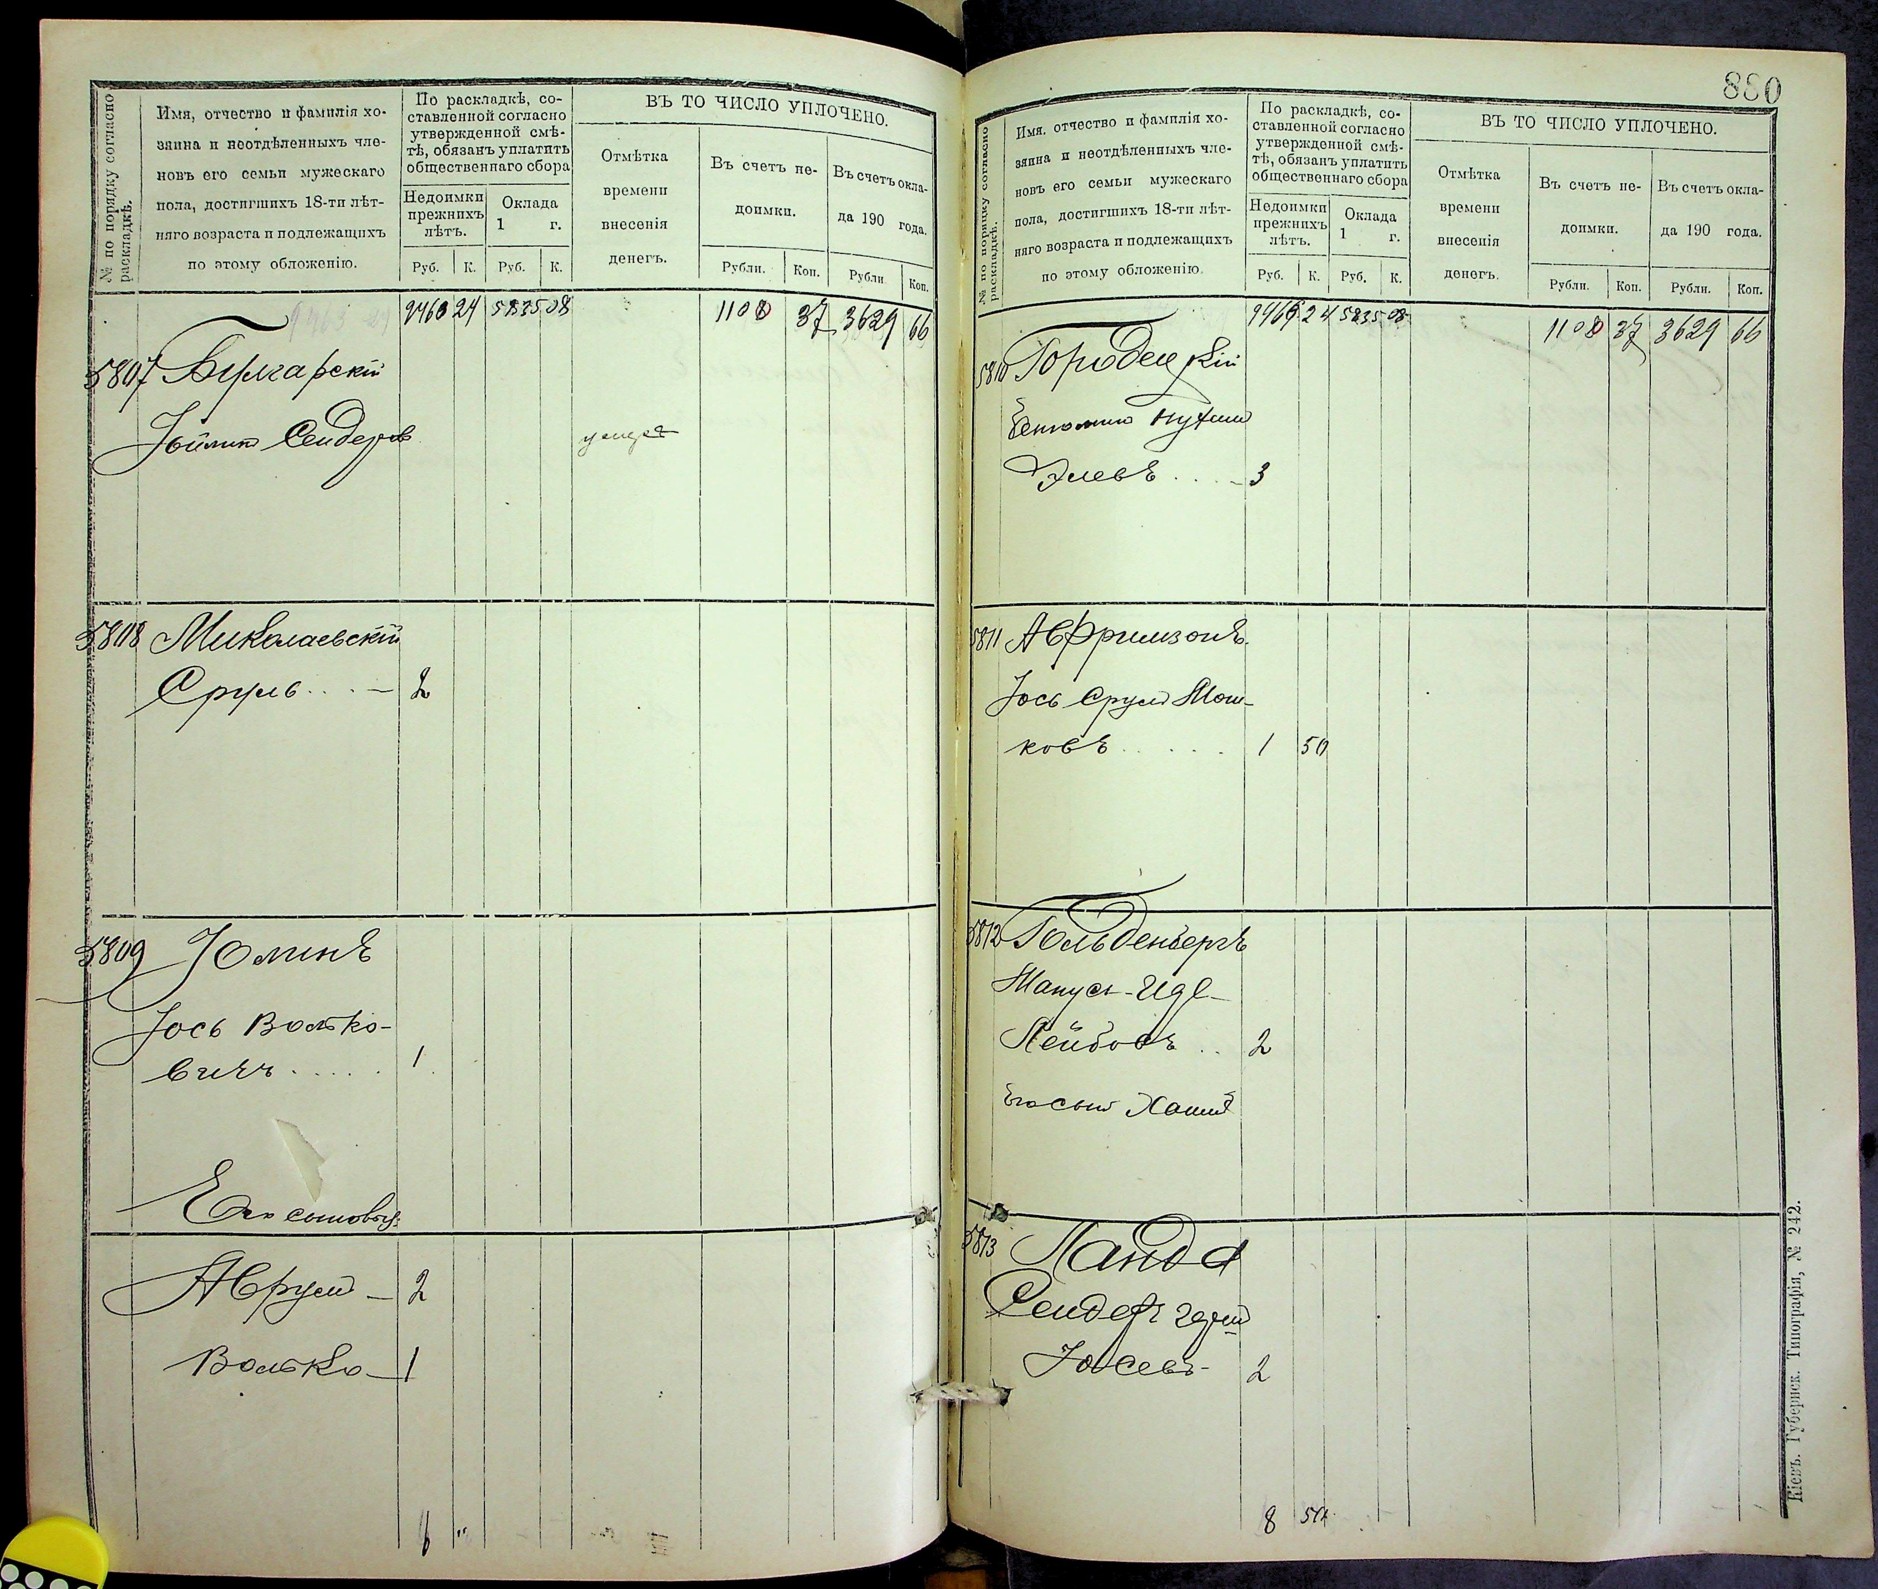 № по порядку согласно раскладкѣ.
Имя, отчество и фамилія хо-
зяина и неотдѣленныхъ чле-
новъ его семьи мужескаго
пола, достигшихъ 18-ти лѣт-
няго возраста и подлежащихъ
по этому обложенію.
По раскладкѣ, со-
ставленной согласно
утвержденной смѣ-
тѣ, обязанъ уплатить
общественнаго сбора
Недоимки
прежнихъ
лѣтъ.
Оклада
1 г.
Руб. К. Руб. К.
ВЪ ТО ЧИСЛО УПЛОЧЕНО.
Отмѣтка
времени
внесенія
денегъ.
Въ счетъ не-
доимки.
Въ счетъ окла-
да 190 года.
Рубли. Коп. Рубли Коп.
9463 24 5835 08 1108 37 3629 66
5807 Булгарскій
Іойлик Сендеров
5808 Миколаевскій
Сруль . . . — 2
5809 Юлинъ
Іось Волько-
вичъ . . . . . 1
Его сыновья:
Аврум — 2
Волько — 1
6 "
880
№ по порядку согласно раскладкѣ.
Имя. отчество и фамилія хо-
зяина и неотдѣленныхъ чле-
новъ его семьи мужескаго
пола, достигшихъ 18-ти лѣт-
няго возраста и подлежащихъ
по этому обложенію.
По раскладкѣ, со-
ставленной согласно
утвержденной смѣ-
тѣ, обязанъ уплатить
общественнаго сбора
Недоимки
прежнихъ
лѣтъ.
Оклада
1 г.
Руб. К. Руб. К.
ВЪ ТО ЧИСЛО УПЛОЧЕНО.
Отмѣтка
времени
внесенія
денегъ.
Въ счетъ не-
доимки.
Въ счетъ окла-
да 190 года.
Рубли. Коп. Рубли. Коп.
9469 24 5835 08 1108 37 3629 66
5810 Городецкій
Бенюмин Нухим
Элевъ . . . - 3
5811 Авфримзонъ.
Іось Срул Мош-
ковъ . . . . . 1 50
5812 Гольденбергъ
Манус-Иде-
Лейбовъ . . 2
Его сын Хаим
5813 Ланда
Сендер Герш
Іосевъ - 2
8 50
Кіевъ. Губернск. Типографія, № 242.